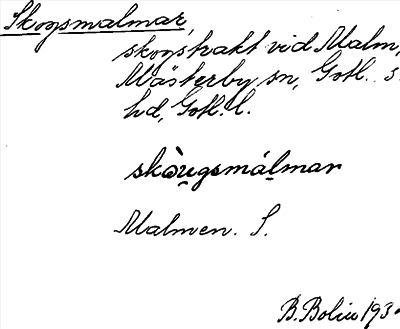 Skogsmalmar,
skogstrakt vid Malm,
Mästerby sn, Gotl. s.
hd, Gotl. l.
skòu̯gsmálmar
Malmen. S.
B. Bolin